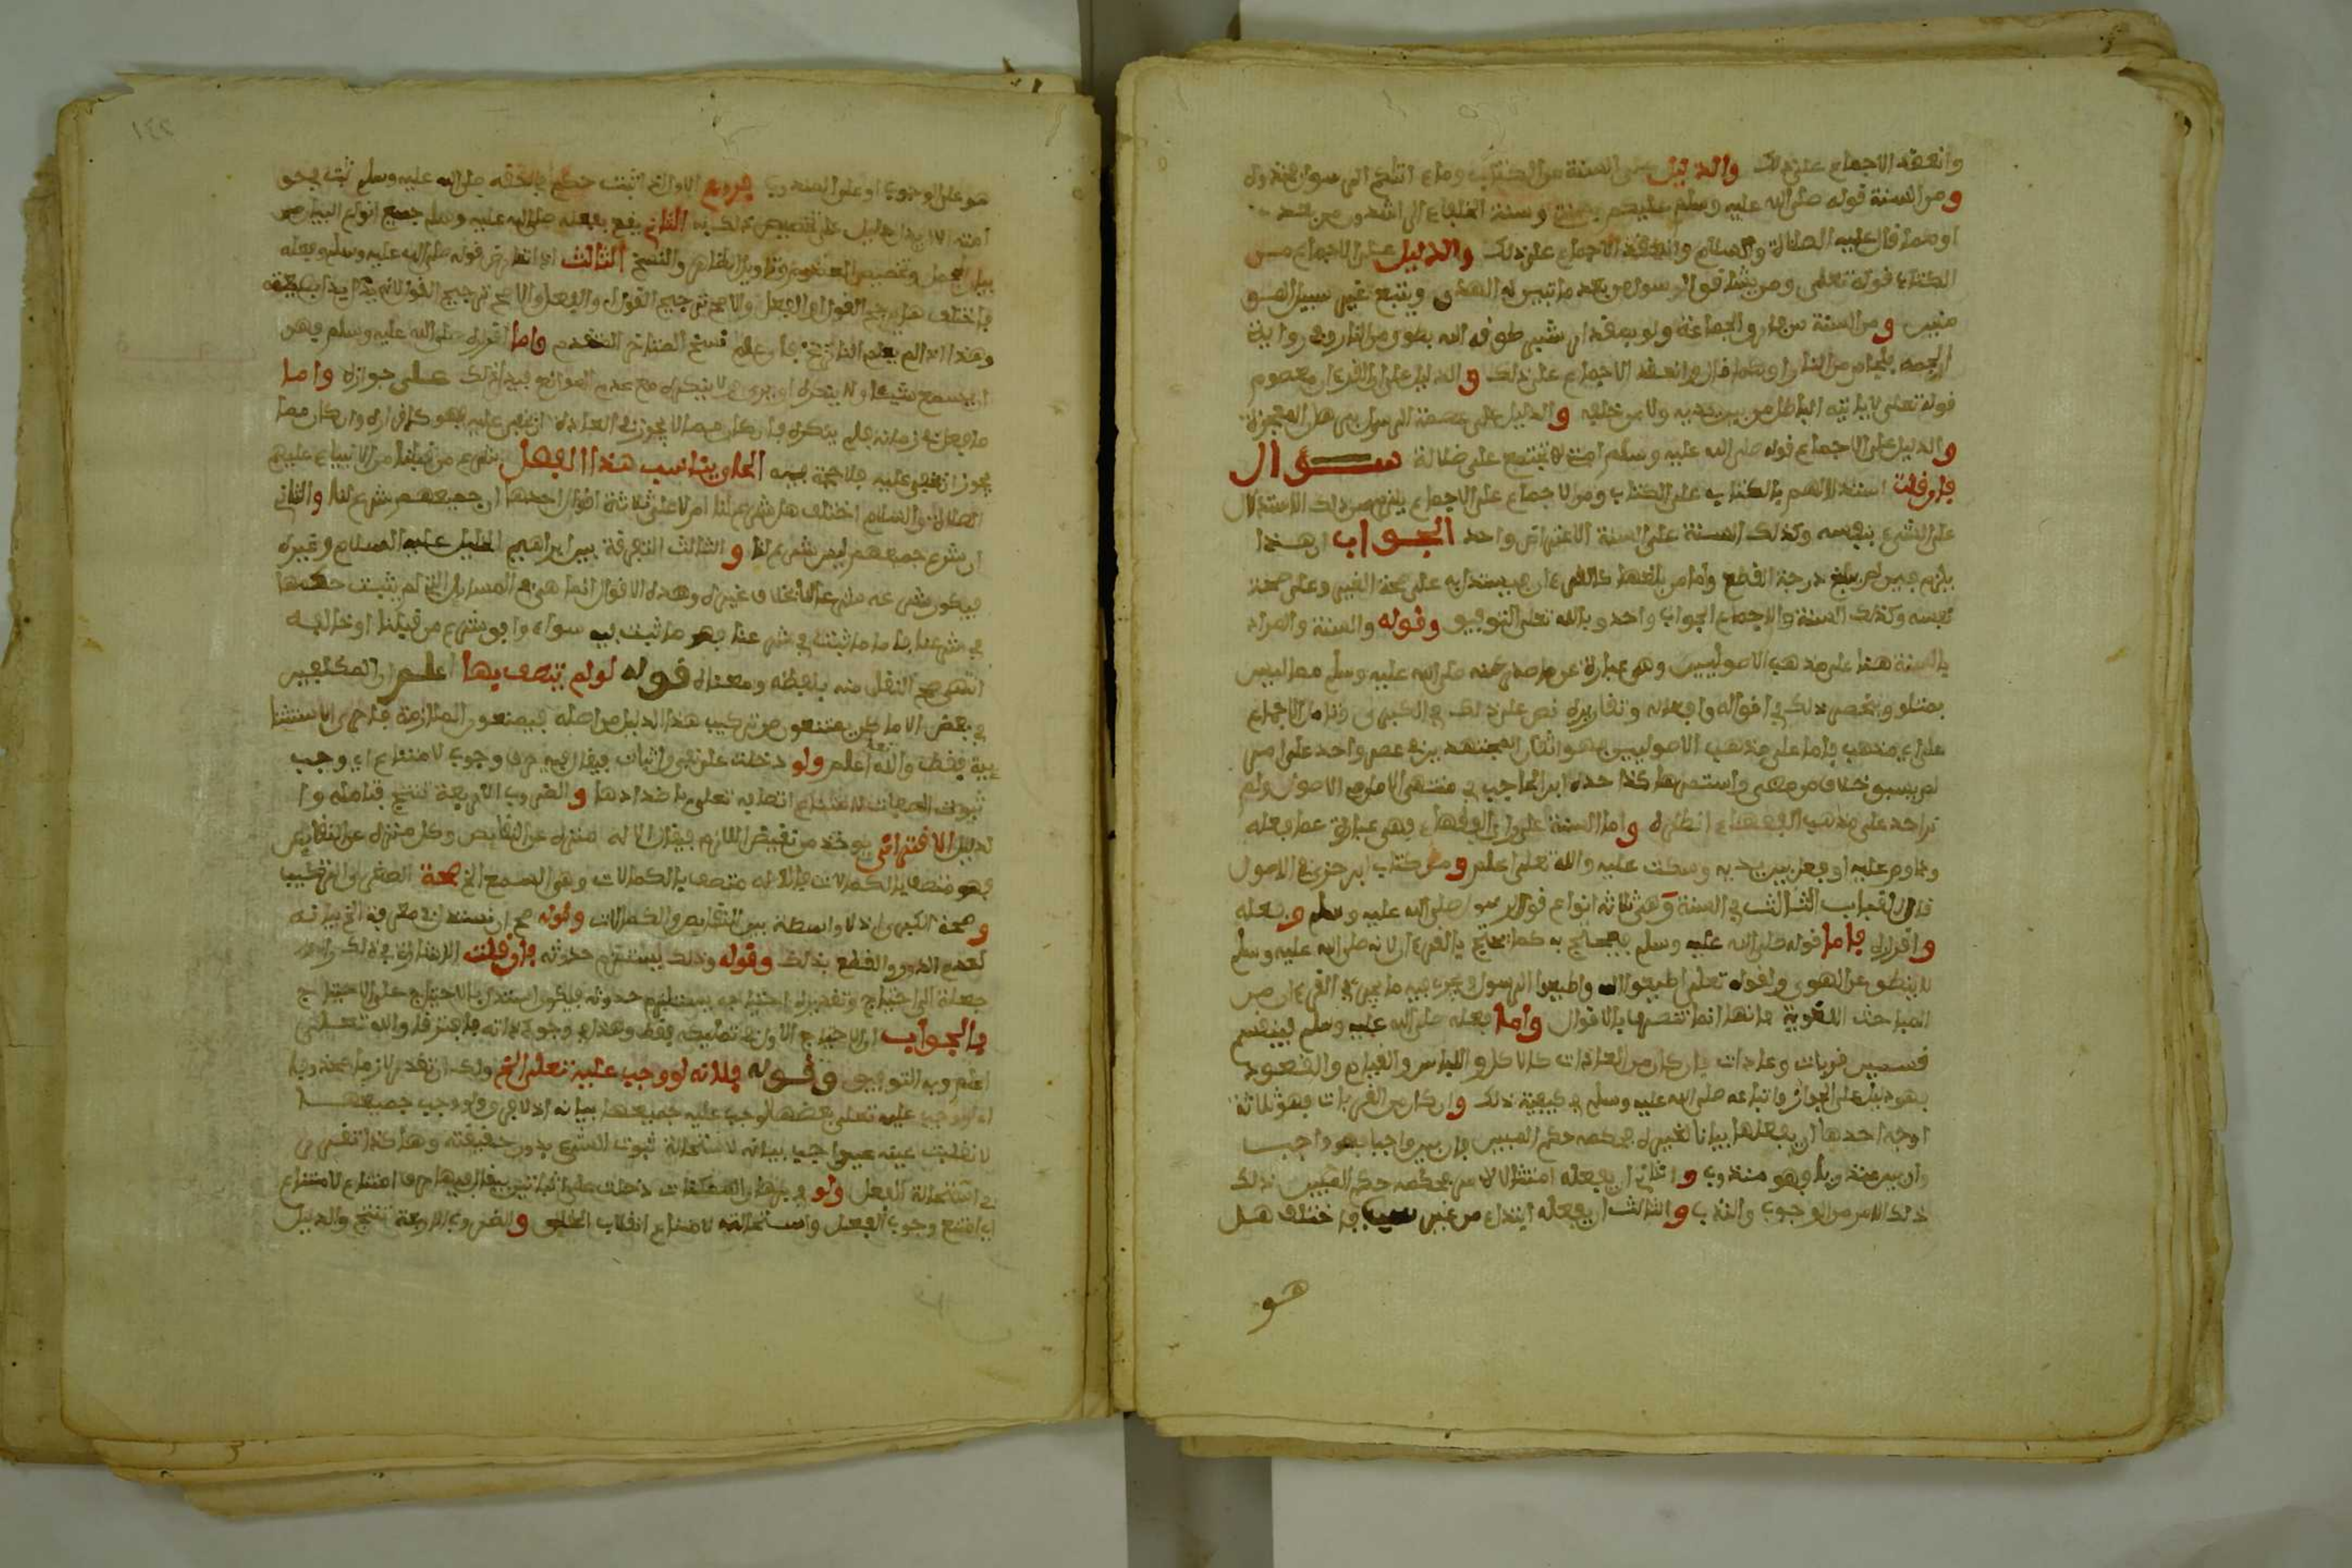 وانعقد الاجماع على ذلك والدليل على السنة من الكتاب وما اتاكم الرسول فخذوه
ومن السنة قوله صلى الله عليه وسلم عليكم بسنتي وسنة الخلفاء الراشدين من بعدي
او كما قال عليه الصلاة والسلام وانعقد الاجماع على ذلك والدليل على الاجماع من
الكتاب قوله تعلى ومن يشاقق الرسول من بعد ما تبين له الهدى ويتبع غير سبيل المو
منين ومن السنة من فارق الجماعة ولو بمقدار شبر طوقه الله بطوق من النار وفي رواية
الجمه بلجام من النار او كما قال وانعقد الاجماع على ذلك والدليل على ان القرءان معصوم
قوله تعلى لا ياتيه الباطل من بين يديه ولا من خلفه والدليل على عصمة الرسول هي هذه المعجزة
والدليل على الاجماع قوله صلى الله عليه وسلم امتي لا تجتمع على ضلالة ســـؤال
فان قلت استدلالهم بالكتاب على الكتاب ومن الاجماع على الاجماع يلزم من ذلك الاستدلال
على الشيء بنفسه وكذلك السنة على السنة الاعتراض واحد الجـواب ان هـذا
يلزم فيمن لم يبلغ درجة القطع واما من بلغها كالقرءان فيستدل به على صحة الغير وعلى صحة
نفسه وكذلك السنة والاجماع الجواب واحد وبالله تعلى التوفيق وقوله والسنة والمراد
بالسنة هنا على مذهب الاصوليين وهي عبارة عن ما صدر عنه صلى الله عليه وسلم مما ليس
بمتلو وينحصر ذلك في اقواله وافعاله وتقاريره نص على ذلك في الكبرى وقناما الاجماع
على اي مذهب فاما على مذهب الاصوليين فهو اتفاق المجتهدين في عصر واحد على امر
لم يسبق خلاف من مضى واستمر هكذا حده ابن الحاجب في منتهى الامل في الاصول ولم
نر احد على مذهب الفقهاء انظره واما السنة على راي الفقهاء فهي عبارة عما فعله
وداوم عليه او فعل بين يديه وسكت عليه والله تعلى اعلم ومن كتاب ابن جزي في الاصول
قال الباب الثالث في السنة وهي ثلاثة انواع قول الرسول صلى الله عليه وسلم وفعله
واقراره فاما قوله صلى الله عليه وسلم فيحتج به كما يحتج بالقرءان لانه صلى الله عليه وسلم
لا ينطق عن الهوى ولقوله تعلى اطيعوا الله واطيعوا الرسول ويجري فيه ما يجري في القرءان من
المباحث اللغوية فانها انما تتصرف بالاقوال واما فعله صلى الله عليه وسلم فينقسم
قسمين قربات وعادات فان كان من العادات كالاكل واللباس والقيام والقعود
فهو دليل على الجواز واتباعه صلى الله عليه وسلم في كيفية ذلك وان كان من القربات فهو ثلاثة
اوجه احدها ان يفعلها بيانا لغيره فحكمه حكم المبين فان بين واجبا فهو واجب
وان بين مندوبا فهو مندوب والثاني ان يفعله امتثالا لامر فحكمه حكم المبين ذلك
ذلك الامر من الوجوب والندب والثالث ان يفعله ابتداء من غير سبب فاختلف هـل
هـو
هو على الوجوب او على المندوب فروع الاول اذا ثبت حكم في حقه صلى الله عليه وسلم ثبت في حق
امته الا ان يدل دليل على تخصيص ذلك به الثاني يقع بفعله صلى الله عليه وسلم جميع انواع البيان من
بيان المجمل وتخصيص العموم وتاويل الظاهر والنسخ الثالث اذا تعارض قوله صلى الله عليه وسلم وفعله
فاختلف هل يرجح القول او الفعل والاصح ترجيح القول لانه يدل بذاته
وهذا اذا لم يعلم التاريخ فان علم نسخ المتاخر المتقدم واما اقراره صلى الله عليه وسلم فهو
ان يسمع شيئا ولا ينكره او يرى ولا ينكره مع عدم الموانع فيدل ذلك على جوازه واما
ما فعل في زمانه فلم ينكره فان كان مما لا يجوز في العادة ان يخفى عليه فهو كاقراره وان كان مما
يجوز ان يخفى عليه فلا حجة فيه الحاق يناسب هذا الفصل شرع من قبلنا من الانبياء عليهم
الصلاة والسلام اختلف هل شرع لنا ام لا على ثلاثة اقوال احدها ان جميعهم شرع لنا والثاني
ان شرع جميعهم ليس شرع لنا والثالث التفرقة بين ابراهيم الخليل عليه السلام وغيره
فيكون شرعه شرعا لنا بخلاف غيره وهذه الاقوال انما هي في المسايل التي لم يثبت حكمها
في شرعنا فاما ما ثبت في شرعنا فهو ما ثبت فيه سواء وافق شرع من قبلنا او خالفه
انتهى النقل منه بلفظه ومعناه قوله لو لم يتصف بها اعلم ان المكلفين
في بعض الاماكن يمتنعون من تركيب هذا الدليل من اصله فيصنعون الملازمة
فقط والله تعلى اعلم ولو دخلت على نفي واثبات فيقال فيه حرف وجوب لامتناع اي وجب
ثبوت الصفات لامتناع اتصافه تعلى باضدادها والضروب الاربعة تنتج قتامله وا
لدليل الاقتراني يوخذ من نقيض اللازم فيقال الاله منزه عن النقايص وكل منزه عن النقايص
فهو متصف بالكمالات فالاله متصف بالكمالات وهي السمع الخ صحة الصغرى
وصحة الكبرى اذ لا واسطة بين النقايص والكمالات وقوله صح ان يستند في معرفة الخ بيانه
لعدم الدور والقطع بذلك وقوله وذلك يستلزم حدوثه فان قلت الاشارة في ذلك راجعة
جعلة الى احتياج وتقديره احتياجه يستلزم حدوثه فيكون استدل بالاحتياج على الاحتياج
فالجواب ان الاحتياج الاول تخليصه فقط وهذا في وجود ذاته فافترقا والله تعـلى
اعلم وبه التوفيق وقوله فلانه لو وجب عليه تعلى الخ ولك ان تقدر لازما محذوفا
اي لو وجب عليه تعلى بعضها لوجب عليه جميعها بيانه اذ لا فرق ولو وجب جميعهـا
لانقلبت عينه عينا واجبا بيانه لاستحالة ثبوت الشيء بدون حقيقته وهكذا تقرر
في استحالة الفعل ولو في هذه المسئلة دخلت على اثباتين يقال فيها حرف امتناع لامتناع
اي امتنع وجوب الفعل واستحالته لامتناع انقلاب الحقايق والضروب الاربعة تنتج والدليل